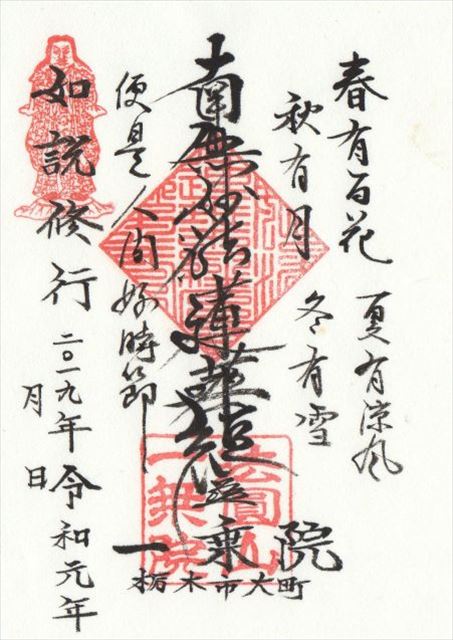 春有百花
夏有涼風
秋有月
冬有雪
便是人间好時節
南無妙法蓮華経
一乗院
栃木市大町
如説修行
二〇一九年
令和元年
月
日
一乗院